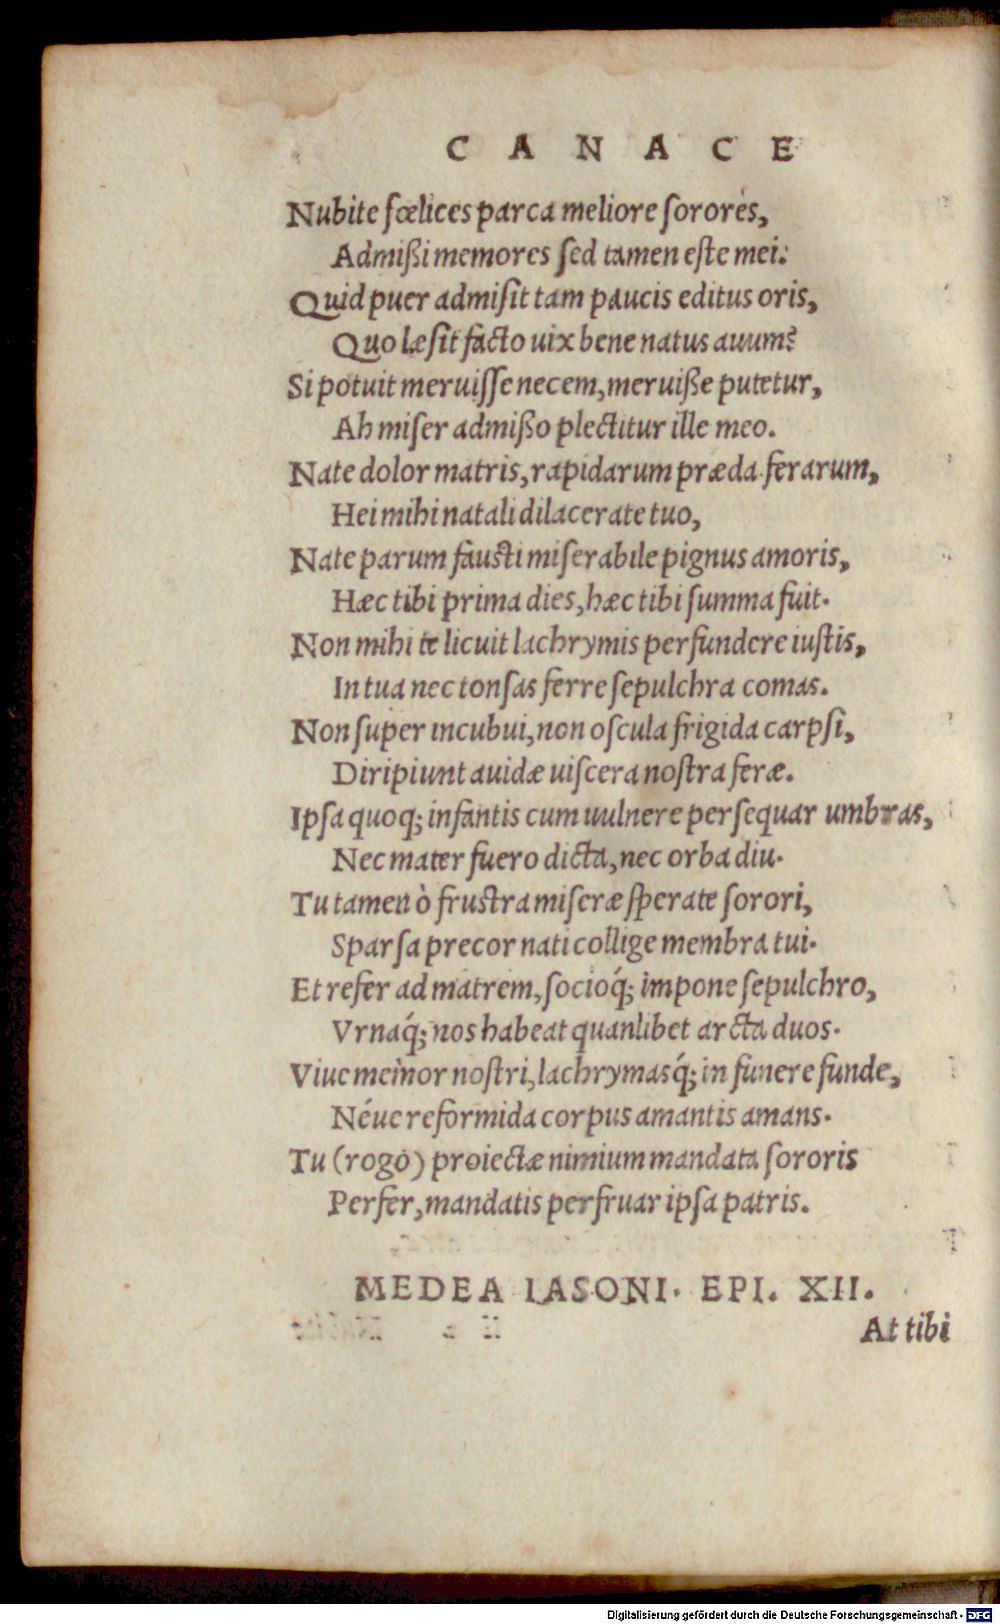 CANACE
Nubite fœlices parca meliore ſorores,
Admißi memores ſed tamen eſte mei:
Quid puer admiſit tam paucis editus oris,
Quo læſit facto uix bene natus auum?
Si potuit meruiſſe necem, meruiße putetur,
Ah miſer admißo plectitur ille meo.
Nate dolor matris, rapidarum præda ferarum,
Hei mihi natali dilacerate tuo,
Nate parum fausti miſerabile pignus amoris,
Hæc tibi prima dies, hæc tibi ſumma fuit.
Non mihi te licuit lachrymis perfundere iuſtis,
In tua nec tonſas ferre ſepulchra comas.
Non ſuper incubui, non oſcula frigida carpſi,
Diripiunt auidæ uiſcera noſtra feræ.
Ipſa quoq; infantis cum uulnere perſequar umbras,
Nec mater fuero dicta, nec orba diu.
Tu tamen ò frustra miſeræ ſperate ſorori,
Sparſa precor nati collige membra tui.
Et refer ad matrem, ſocioq́; impone ſepulchro,
Vrnaq́; nos habeat quanlibet arcta duos.
Viue memor noſtri, lachrymasq́; in funere funde,
Néue reformida corpus amantis amans.
Tu (rogo) proiectæ nimium mandata ſororis
Perfer, mandatis perfruar ipſa patris.
MEDEA IASONI. EPI. XII.
At tibi
Digitalisierung gefördert durch die Deutsche Forschungsgemeinschaft - DFG